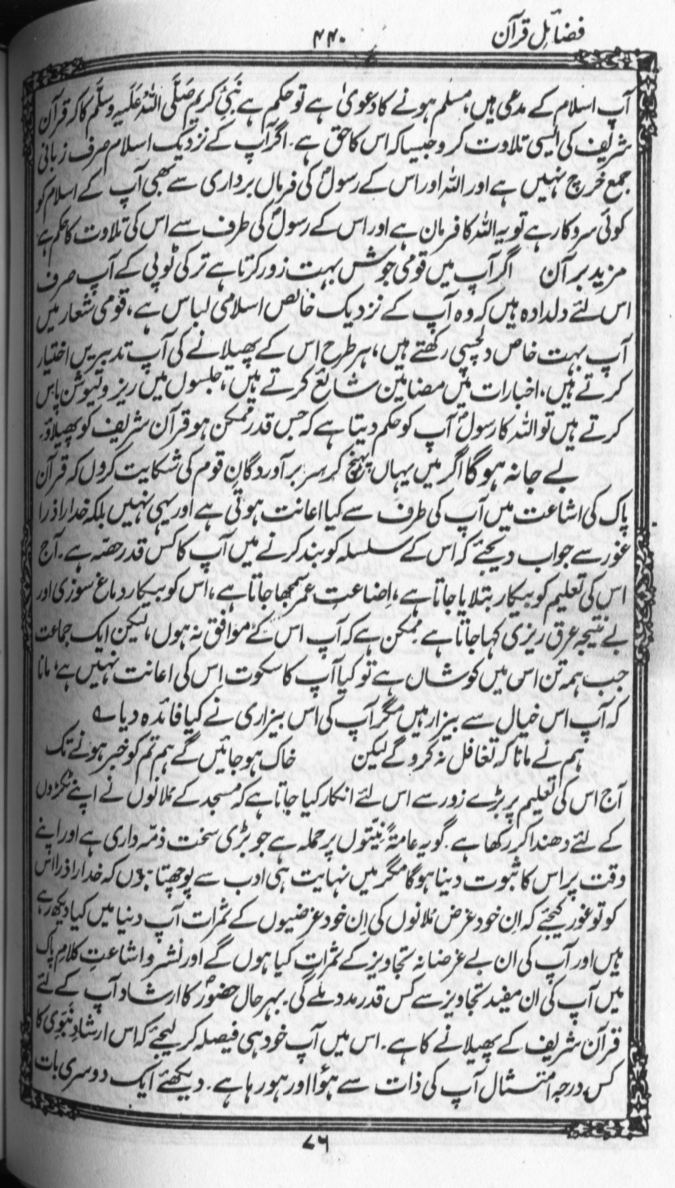 فضائل قرآن
۴۴۰
آپ اسلام کے مدعی ہیں، مسلم ہونے کا دعویٰ ہے تو حکم ہے نبی کریم صَلَّی اللہُ عَلَیہِ وسَلَّم کا کہ قرآن
شریف کی ایسی تلاوت کرو جیسا کہ اس کا حق ہے۔ اگر آپ کے نزدیک اسلام صرف زبانی
جمع خرچ نہیں ہے اور اللہ اور اس کے رسولؐ کی فرماں برداری سے بھی آپ کے اسلام کو
کوئی سروکار ہے تو یہ اللہ کا فرمان ہے اور اس کے رسولؐ کی طرف سے اس کی تلاوت کا حکم ہے
مزید بر آن اگر آپ میں قومی جوش بہت زور کرتا ہے ترکی ٹوپی کے آپ صرف
اس لئے دلدادہ ہیں کہ وہ آپ کے نزدیک خالص اسلامی لباس ہے، قومی شعار میں
آپ بہت خاص دلچسپی رکھتے ہیں، ہر طرح اس کے پھیلانے کی آپ تدبیریں اختیار
کرتے ہیں، اخبارات میں مضامین شائع کرتے ہیں، جلسوں میں ریزولیوشن پاس
کرتے ہیں تو اللہ کا رسولؐ آپ کو حکم دیتا ہے کہ جس قدر ممکن ہو قرآن شریف کو پھیلاؤ۔
بے جا نہ ہوگا اگر میں یہاں پہنچ کر سر بر آوردگانِ قوم کی شکایت کروں کہ قرآن
پاک کی اشاعت میں آپ کی طرف سے کیا اعانت ہوتی ہے اور یہی نہیں بلکہ خدارا ذرا
غور سے جواب دیجئے کہ اس کے سلسلہ کو بند کرنے میں آپ کا کس قدر حصہ ہے۔ آج
اس کی تعلیم کو بیکار بتلایا جاتا ہے، اضاعتِ عمر سمجھا جاتا ہے، اس کو بیکار دماغ سوزی اور
بے نتیجہ عرق ریزی کہا جاتا ہے ممکن ہے کہ آپ اس کے موافق نہ ہوں، لیکن ایک جماعت
جب ہمہ تن اس میں کوشاں ہے تو کیا آپ کا سکوت اس کی اعانت نہیں ہے؛ مانا
کہ آپ اس خیال سے بیزار ہیں مگر آپ کی اس بیزاری نے کیا فائدہ دیا ے
ہم نے مانا کہ تغافل نہ کرو گے لیکن خاک ہو جائیں گے ہم تم کو خبر ہونے تک
آج اس کی تعلیم پر بڑے زور سے اس لئے انکار کیا جاتا ہے کہ مسجد کے مُلانوں نے اپنے ٹکڑوں
کے لئے دھندا کر رکھا ہے۔ گو یہ عامۃً نیتوں پر حملہ ہے جو بڑی سخت ذمہ داری ہے اور اپنے
وقت پر اس کا ثبوت دینا ہوگا مگر میں نہایت ہی ادب سے پوچھتا ہوں کہ خدارا ذرا اس
کو تو غور کیجئے کہ ان خود غرض مُلانوں کی ان خود غرضیوں کے ثمرات آپ دنیا میں کیا دیکھ رہے
ہیں اور آپ کی ان بے غرضانہ تجاویز کے ثمرات کیا ہوں گے اور نشر و اشاعتِ کلامِ پاک
میں آپ کی ان مفید تجاویز سے کس قدر مدد ملے گی۔ بہر حال حضورؐ کا ارشاد آپ کے لئے
قرآن شریف کے پھیلانے کا ہے۔ اس میں آپ خود ہی فیصلہ کر لیجئے کہ اس ارشادِ نبوی کا
کس درجہ امتثال آپ کی ذات سے ہوا اور ہو رہا ہے۔ دیکھئے ایک دوسری بات
۷۶